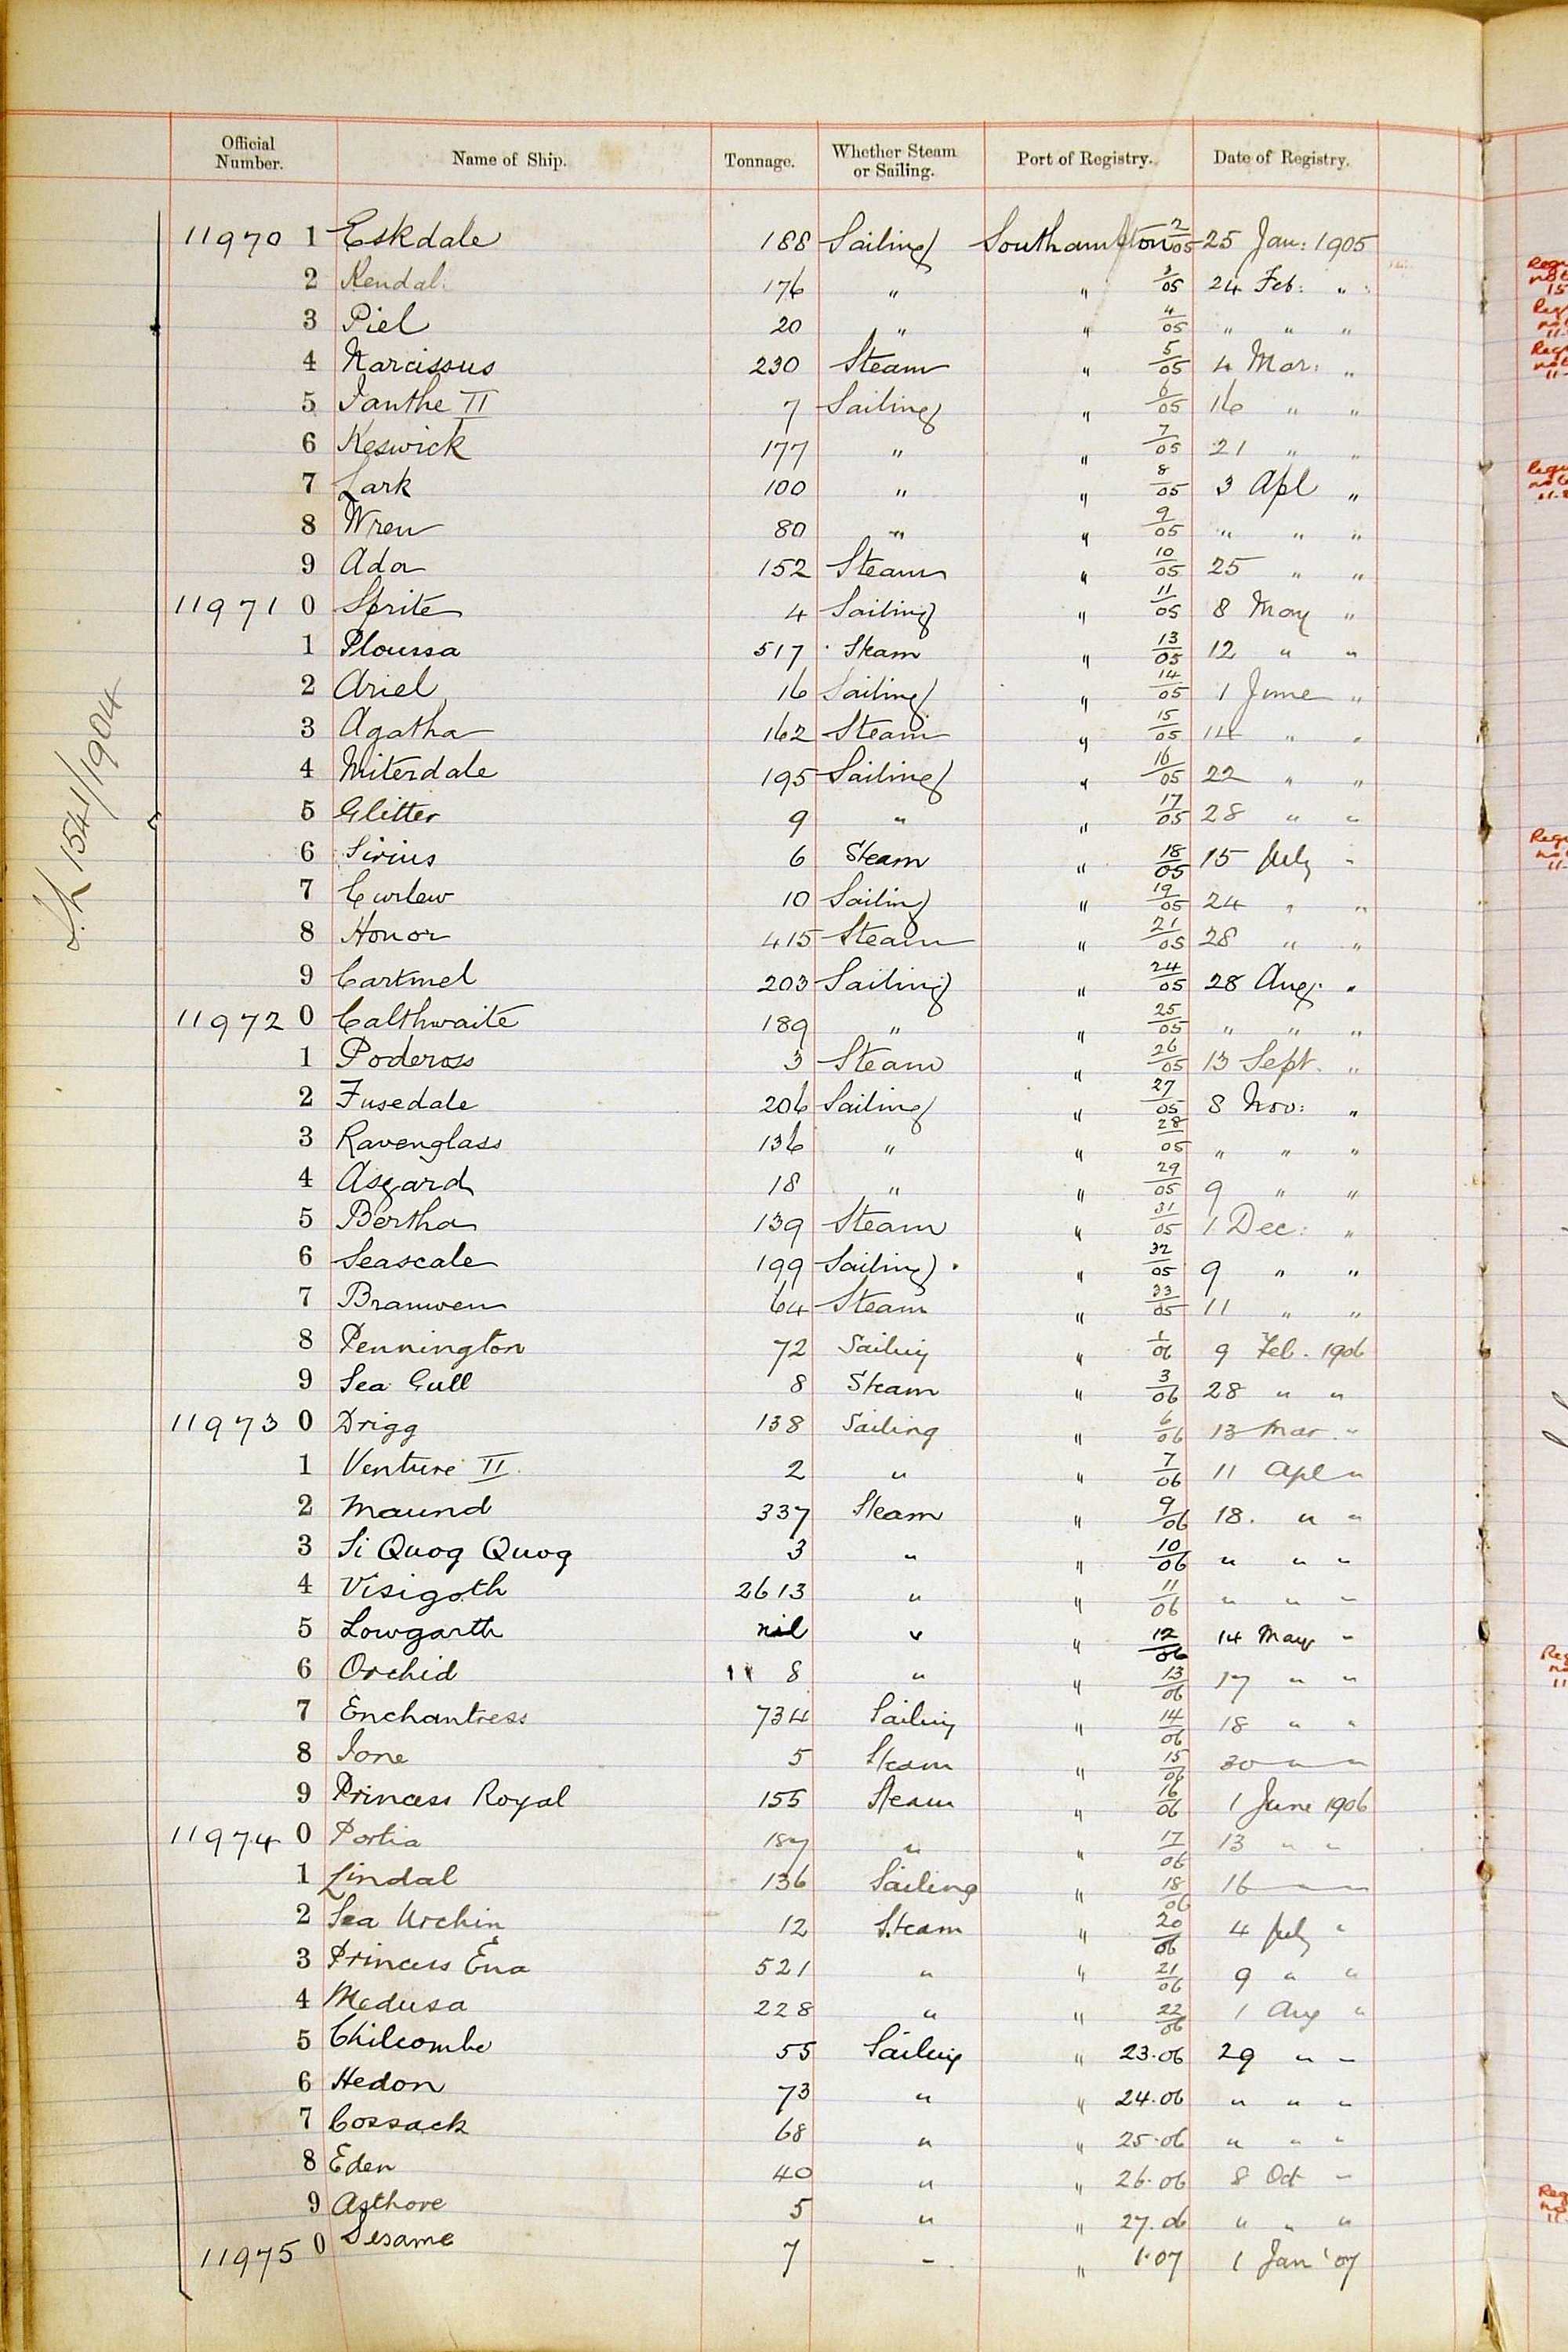 Official Number. Name of Ship. Tonnage. Whether Steam or Sailing. Port of Registry. Date of Registry.
11970 1 Eskdale 188 Sailing Southampton 2/05 25 Jan: 1905
2 Kendal 176 " " 3/05 24 Feb: "
3 Piel 20 " " 4/05 " " "
4 Narcissus 230 Steam " 5/05 4 Mar: "
5 Ianthe II 7 Sailing " 6/05 16 " "
6 Keswick 177 " " 7/05 21 " "
7 Lark 100 " " 8/05 3 Apl "
8 Wren 80 " " 9/05 " " "
9 Ada 152 Steam " 10/05 25 " "
11971 0 Sprite 4 Sailing " 11/05 8 May "
1 Ploussa 517 Steam " 13/05 12 " "
2 Ariel 16 Sailing " 14/05 1 June "
3 Agatha 162 Steam " 15/05 14 " "
4 Miterdale 195 Sailing " 16/05 22 " "
5 Glitter 9 " " 17/05 28 " "
6 Sirius 6 Steam " 18/05 15 July "
7 Curlew 10 Sailing " 19/05 24 " "
8 Honor 415 Steam " 21/05 28 " "
9 Cartmel 203 Sailing " 24/05 28 Aug. "
11972 0 Calthwaite 189 " " 25/05 " " "
1 Poderoso 3 Steam " 26/05 13 Sept. "
2 Fusedale 206 Sailing " 27/05 8 Nov: "
3 Ravenglass 136 " " 28/05 " " "
4 Asgard 18 " " 29/05 9 " "
5 Bertha 139 Steam " 31/05 1 Dec: "
6 Seascale 199 Sailing " 32/05 9 " "
7 Branwen 64 Steam " 33/05 11 " "
8 Pennington 72 Sailing " 1/06 9 Feb. 1906
9 Sea Gull 8 Steam " 3/06 28 " "
11973 0 Drigg 138 Sailing " 6/06 13 Mar. "
1 Venture II. 2 " " 7/06 11 Apl "
2 Maund 337 Steam " 9/06 18. " "
3 Si Quog Quog 3 " " 10/06 " " "
4 Visigoth 2613 " " 11/06 " " "
5 Lowgarth nil " " 12/06 14 May "
6 Orchid 8 " " 13/06 17 " "
7 Enchantress 734 Sailing " 14/06 18 " "
8 Ione 5 Steam " 15/06 30 " "
9 Princess Royal 155 Steam " 16/06 1 June 1906
11974 0 Portia 187 " " 17/06 13 " "
1 Lindal 136 Sailing " 18/06 16 " "
2 Sea Urchin 12 Steam " 20/06 4 July "
3 Princess Ena 521 " " 21/06 9 " "
4 Medusa 228 " " 22/06 1 Aug "
5 Chilcombe 55 Sailing " 23.06 29 " "
6 Hedon 73 " " 24.06 " " "
7 Cossack 68 " " 25.06 " " "
8 Eden 40 " " 26.06 8 Oct "
9 Asthore 5 " " 27.06 " " "
11975 0 Sesame 7 " " 1.07 1 Jan '07
1541/1904